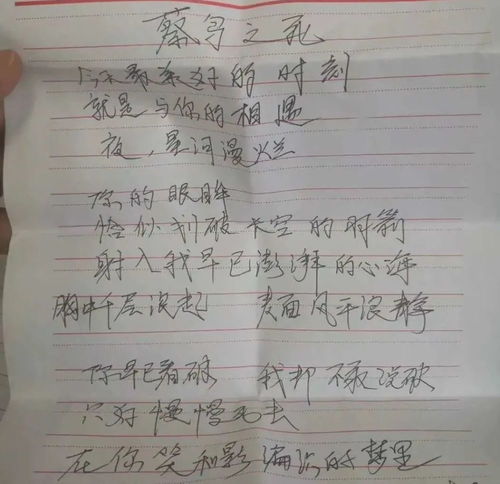 蔡㝵之死
今天最美好的时刻
就是与你的相遇
夜,星河漫烂
你的眼眸
恰似划破长空的羽箭
射入我早已澎湃的心海
胸中千层浪起 表面风平浪静
你早已看破 我却不敢说破
只好慢慢死去
在你笑和影编织的梦里